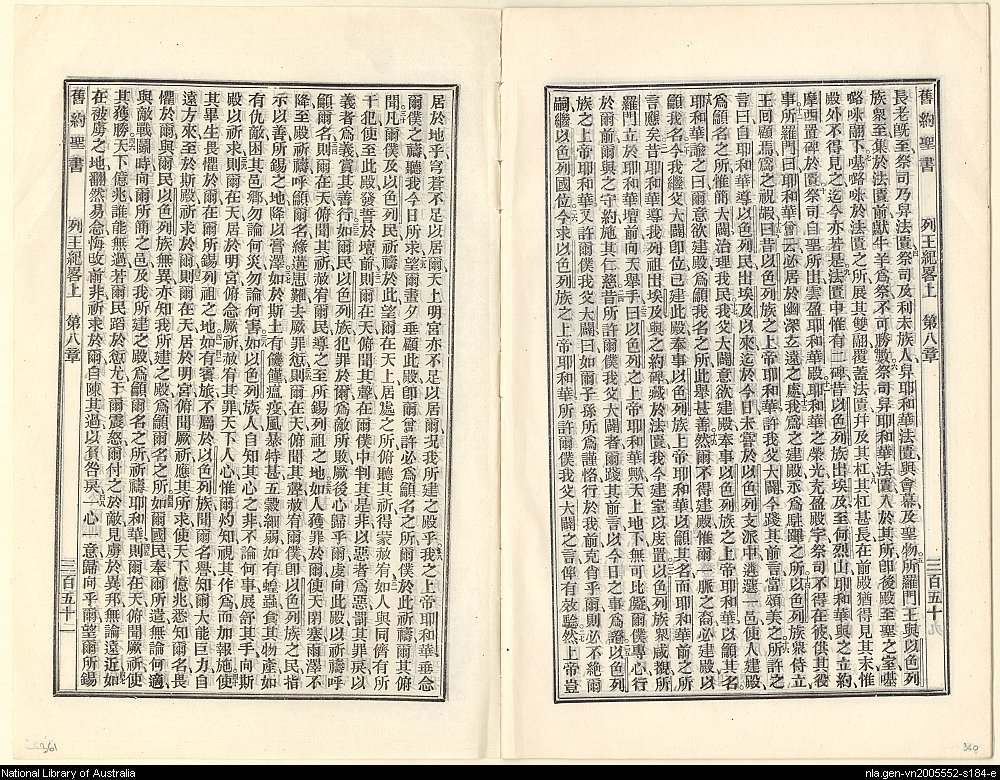 舊約聖書 列王紀畧上 第八章 三百五十
長老旣至祭司乃舁法匱祭司及利未族人舁耶和華法匱與會幕及聖物所羅門王與以色列
族衆至集於法匱前獻牛羊爲祭不可勝數祭司舁耶和華法匱入於其所卽後殿至聖之室𠼻
𡀔𠯆翮下𠼻𡀔𠯆於法匱之所展其雙翮覆蓋法匱幷及其杠其杠甚長在前殿猶得見其末惟
殿外不得見之迄今亦若是法匱中惟有二碑昔以色列族出埃及至何烈山耶和華與之立約
摩西置碑於法匱祭司自聖所出雲盈耶和華殿耶和華之榮光充盈殿宇祭司不得在彼供其役
事所羅門曰耶和華曾云必居於幽深玄遠之處我爲之建殿永爲駐蹕之所以色列族衆侍立
王回顧焉爲之祝嘏曰昔以色列族之上帝耶和華許我父大闢今踐其前言當頌美之所許之
言曰自耶和華導以色列民出埃及以來迄於今日未嘗於以色列支派中遴選一邑使人建殿
顧名之所惟簡大闢治理我民我父大闢意欲建殿奉事以色列族之上帝耶和華以籲其名
耶和華諭之曰爾意欲建殿爲籲我名之所此舉甚善然爾不得建殿惟爾一脈之裔必建殿以
籲我名今我繼父大闢卽位已建此殿奉事以色列族上帝耶和華以籲其名而耶和華前之所
言應矣昔耶和華導我列祖出埃及與之約碑藏於法匱我今建室以庋置以色列族衆咸視所
羅門立於耶和華壇前向天舉手曰以色列之上帝耶和華歟天上地下無可比儗爾僕專心行
於爾前爾與之守約施其仁慈昔所許爾僕我父大闢者爾踐其前言以今日之事爲證以色列
族之上帝耶和華又許爾僕我父大闢曰如爾子孫所爲謹恪行於我前克肖乎爾則必不絕爾
嗣繼以色列國位今求以色列族之上帝耶和華所許爾僕我父大闢之言俾有效驗然上帝豈
居於地乎穹蒼不足以居爾天上明宮亦不足以居爾況我所建之殿乎我之上帝耶和華垂念
爾僕之禱聽我今日所求望爾晝夕垂顧此殿卽爾曾許必爲籲名之所爾僕於此祈禱爾其俯
聞凡爾僕及以色列民祈禱於此望爾在天上居處之所俯聽其祈得蒙赦宥如人與同儕有所
干犯使至此殿發誓於壇前則爾在天俯聞其聲在爾僕中判其是非以惡者爲惡罰其罪戾以
義者爲義賞其善行如爾民以色列族犯罪於爾爲敵所敗厥後心歸乎爾虔向此殿以祈禱呼
籲爾名則爾在天俯聞其祈赦宥爾民導之至所錫列祖之地如人獲罪於爾使天閉塞雨澤不
降至殿祈禱呼籲爾名緣遘患難去厥罪愆則爾在天俯聞其聲赦宥爾僕卽以色列族之民指
示以善所錫之地降以膏澤如於斯土有饑饉瘟疫風暴特甚五穀細弱如有蝗蟲食其物產如
有仇敵困其邑鄉勿論何災勿論何害如以色列族人自知其心之非不論何事展舒其手向斯
殿以祈求則爾在天居於明宮俯念厥祈赦宥其罪天下人心惟爾灼知視其作爲而加報施使
其畢生畏懼於爾在爾所錫列祖之地如有賓旅不屬於以色列族聞爾名譽知爾大能巨力自
遠方來至於斯殿祈求於爾則爾在天居於明宮俯聞厥祈應其所求使天下億兆悉知爾名畏
懼於爾與爾民以色列族無異亦知我所建之殿爲籲爾名之所如爾國民奉爾所遣無論何適
與敵戰鬬時向爾所簡之邑及我所建之殿爲籲爾名之所祈禱耶和華則爾在天俯聞厥祈使
其獲勝天下億兆誰能無過若爾民蹈於愆尤干爾震怒爾付之於敵見虜於異邦無論遠近如
在被虜之地翻然易念悔改前非祈求於爾自陳其過以負咎戾一心一意歸向乎爾望爾所錫
舊約聖書 列王紀畧上 第八章 三百五十一
361
360
National Library of Australia
nla.gen-vn2005552-s184-e